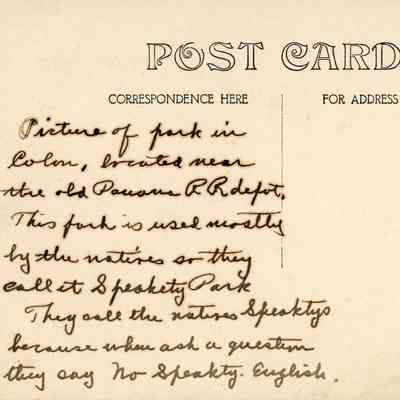 POST CARD
CORRESPONDENCE HERE
FOR ADDRESS
Picture of park in
Colon, located near
the old Panama R R depot.
This park is used mostly
by the natives so they
call it Speakety Park
They call the natives Speaktys
because when ask a question
they say No Speakty. English.